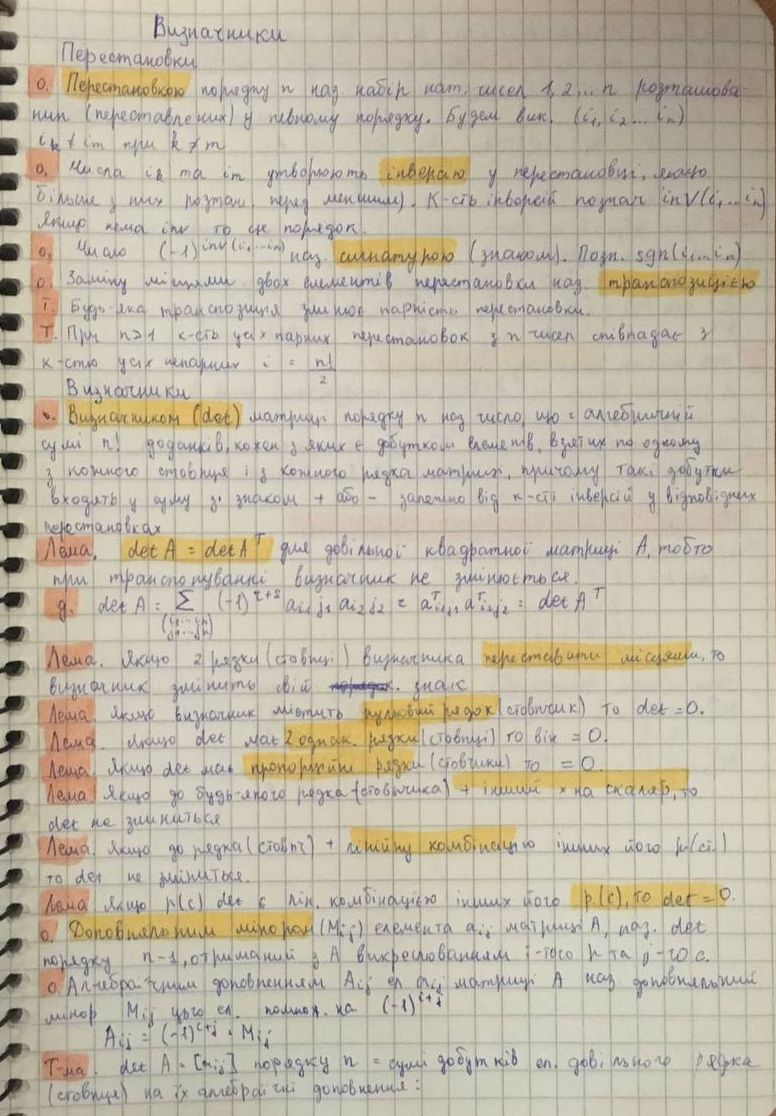 Визначники
Перестановки
О. Перестановкою порядку n наз набір нат. чисел 1, 2 ... n розташова-
них (переставлених) у певному порядку. Будем вик. (i₁, i₂ ... iₙ)
iₖ ≠ iₘ при k ≠ m
О. Числа iₖ та iₘ утворюють інверсію у перестановці, якщо
більше з них розташ. перед меншим). К-сть інверсій познач inv(i₁ ... iₙ)
Якщо нема inv то це порядок.
О. Число (-1)^inv(i₁...iₙ) наз. сигнатурою (знаком). Позн. sgn(i₁...iₙ)
О. Заміну місцями двох елементів перестановки наз. транспозицією
Т. Будь-яка транспозиція змінює парність перестановки.
Т. При n>1 к-сть усіх парних перестановок з n чисел співпадає з
к-стю усіх непарних і = n!/2
Визначники
О. Визначником (det) матриці порядку n наз число, що = алгебричній
сумі n! доданків, кожен з яких є добутком елементів, взятих по одному
з кожного стовпця і з кожного рядка матриці, причому такі добутки
входять у суму зі знаком + або - залежно від к-сті інверсій у відповідних
перестановках
Лема. det A = det Aᵀ для довільної квадратної матриці A, тобто
при транспонуванні визначник не змінюється.
Д. det A = Σ (-1)^r+s a i₁j₁ a i₂j₂ = aᵀ i₁j₁ aᵀ i₂j₂ = det Aᵀ
(i₁...iₙ)
j₁...jₙ
Лема. Якщо 2 рядки (стовпці) визначника переставити місцями, то
визначник змінить свій знак
Лема. Якщо визначник містить нульовий рядок (стовпчик) то det = 0.
Лема. Якщо det має 2 однак. рядки (стовпці) то він = 0.
Лема. Якщо det має пропорційні рядки (стовпчики) то = 0.
Лема Якщо до будь-якого рядка (стовпчика) + інший × на скаляр, то
det не зміниться
Лема. Якщо до рядка (стовпч) + лінійну комбінацію інших його р(ст.)
то det не зміниться.
Лема Якщо р(с) det є лін. комбінацією інших його р.(с), то det = 0.
О. Доповняльним мінором (Mᵢⱼ) елемента aᵢⱼ матриці A, наз. det
порядку n-1, отриманий з A викреслюванням i-того р та j-го с.
О. Алгебраїчним доповненням Aᵢⱼ ел aᵢⱼ матриці A наз доповняльний
мінор Mᵢⱼ цього ел. помнож. на (-1)^i+j
Aᵢⱼ = (-1)^i+j · Mᵢⱼ
Т-ма. det A = [aᵢⱼ] порядку n = сумі добутків ел. довільного рядка
(стовпця) на їх алгебраїчні доповнення: